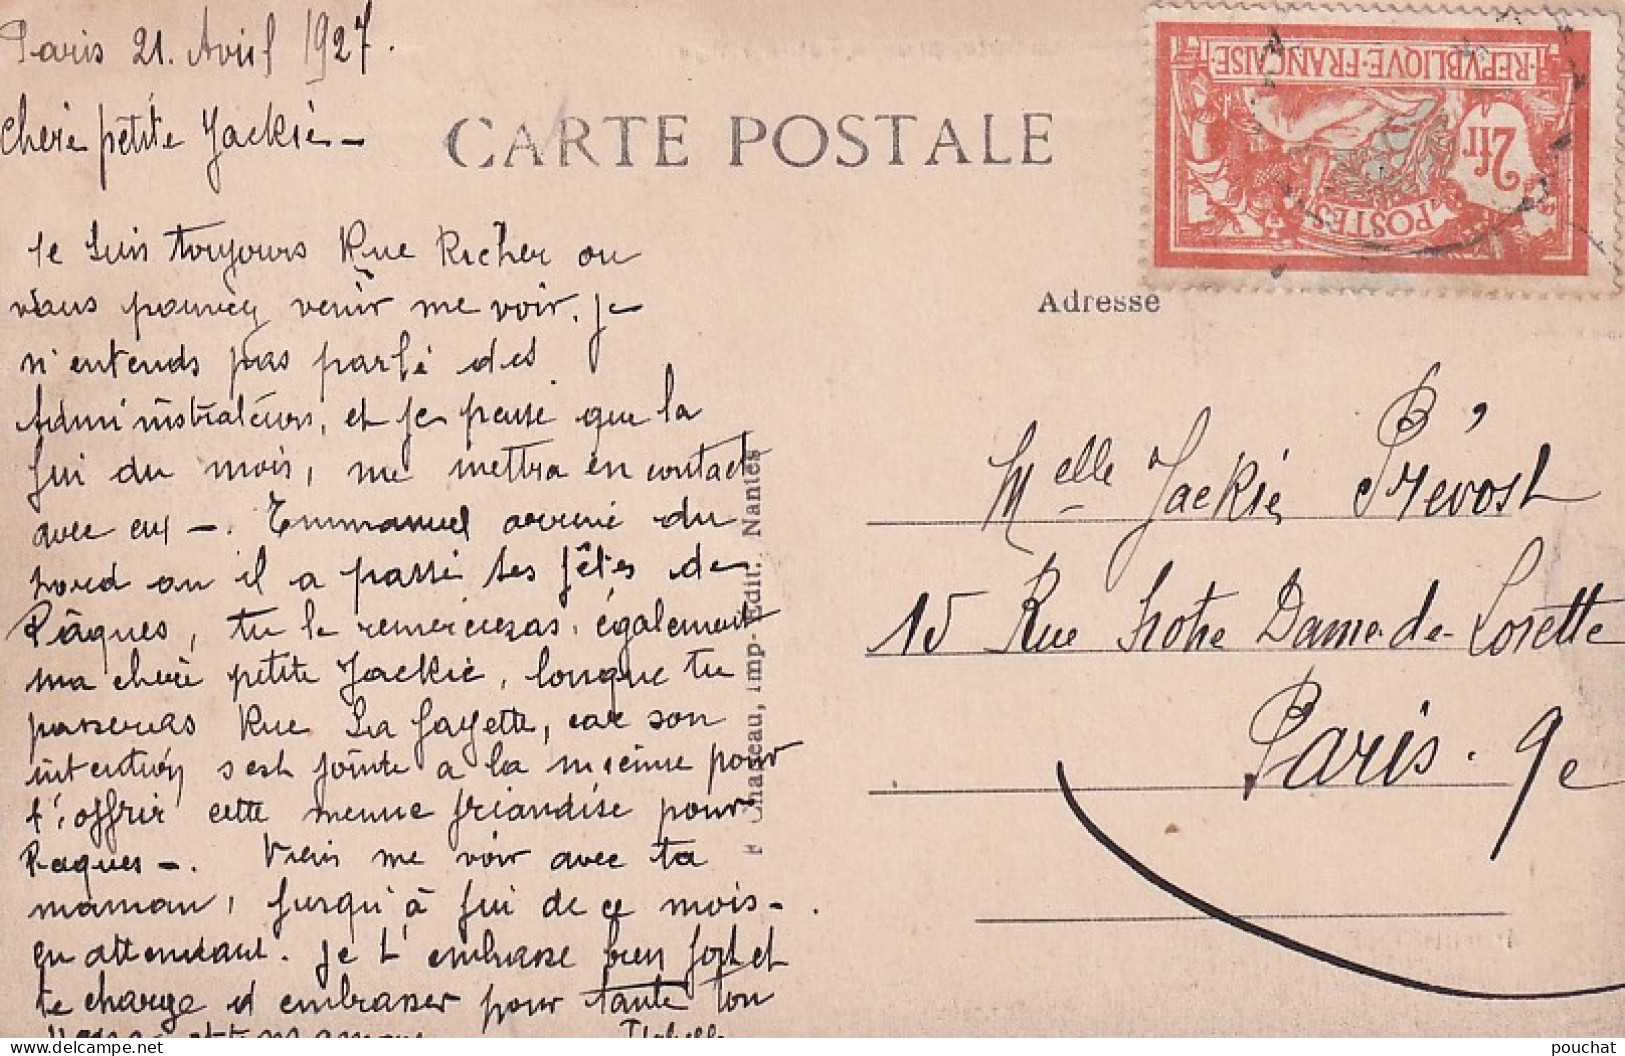 Paris 21. Avril 1927.
Chère petite Jackie —
CARTE POSTALE
REPVBLIQVE · FRANÇAISE
2fr
POSTES
Je suis toujours Rue Richer ou
vous pouvez venir me voir. Je
n'entends pas parlé des
Administrateurs, et je pense que la
fin du mois, me mettra en contact
avec eux —. Emmanuel arrivé du
nord ou il a passé ses fêtes de
Pâques, tu le remercieras également
ma chère petite Jackie, lorsque tu
passeras Rue La fayette, car son
intention s'est jointe a la mienne pour
t'offrir cette menue friandise pour
Paques —. Viens me voir avec ta
maman, jusqu'à fin de ce mois —.
en attendant. Je t'embrasse bien fort et
te charge d'embrasser pour tante ton
papa et ta maman
Chasseau, Imp-Edit. Nantes
Adresse
Melle Jackie Prévost
15 Rue Notre Dame-de-Lorette
Paris. 9e
pouchat